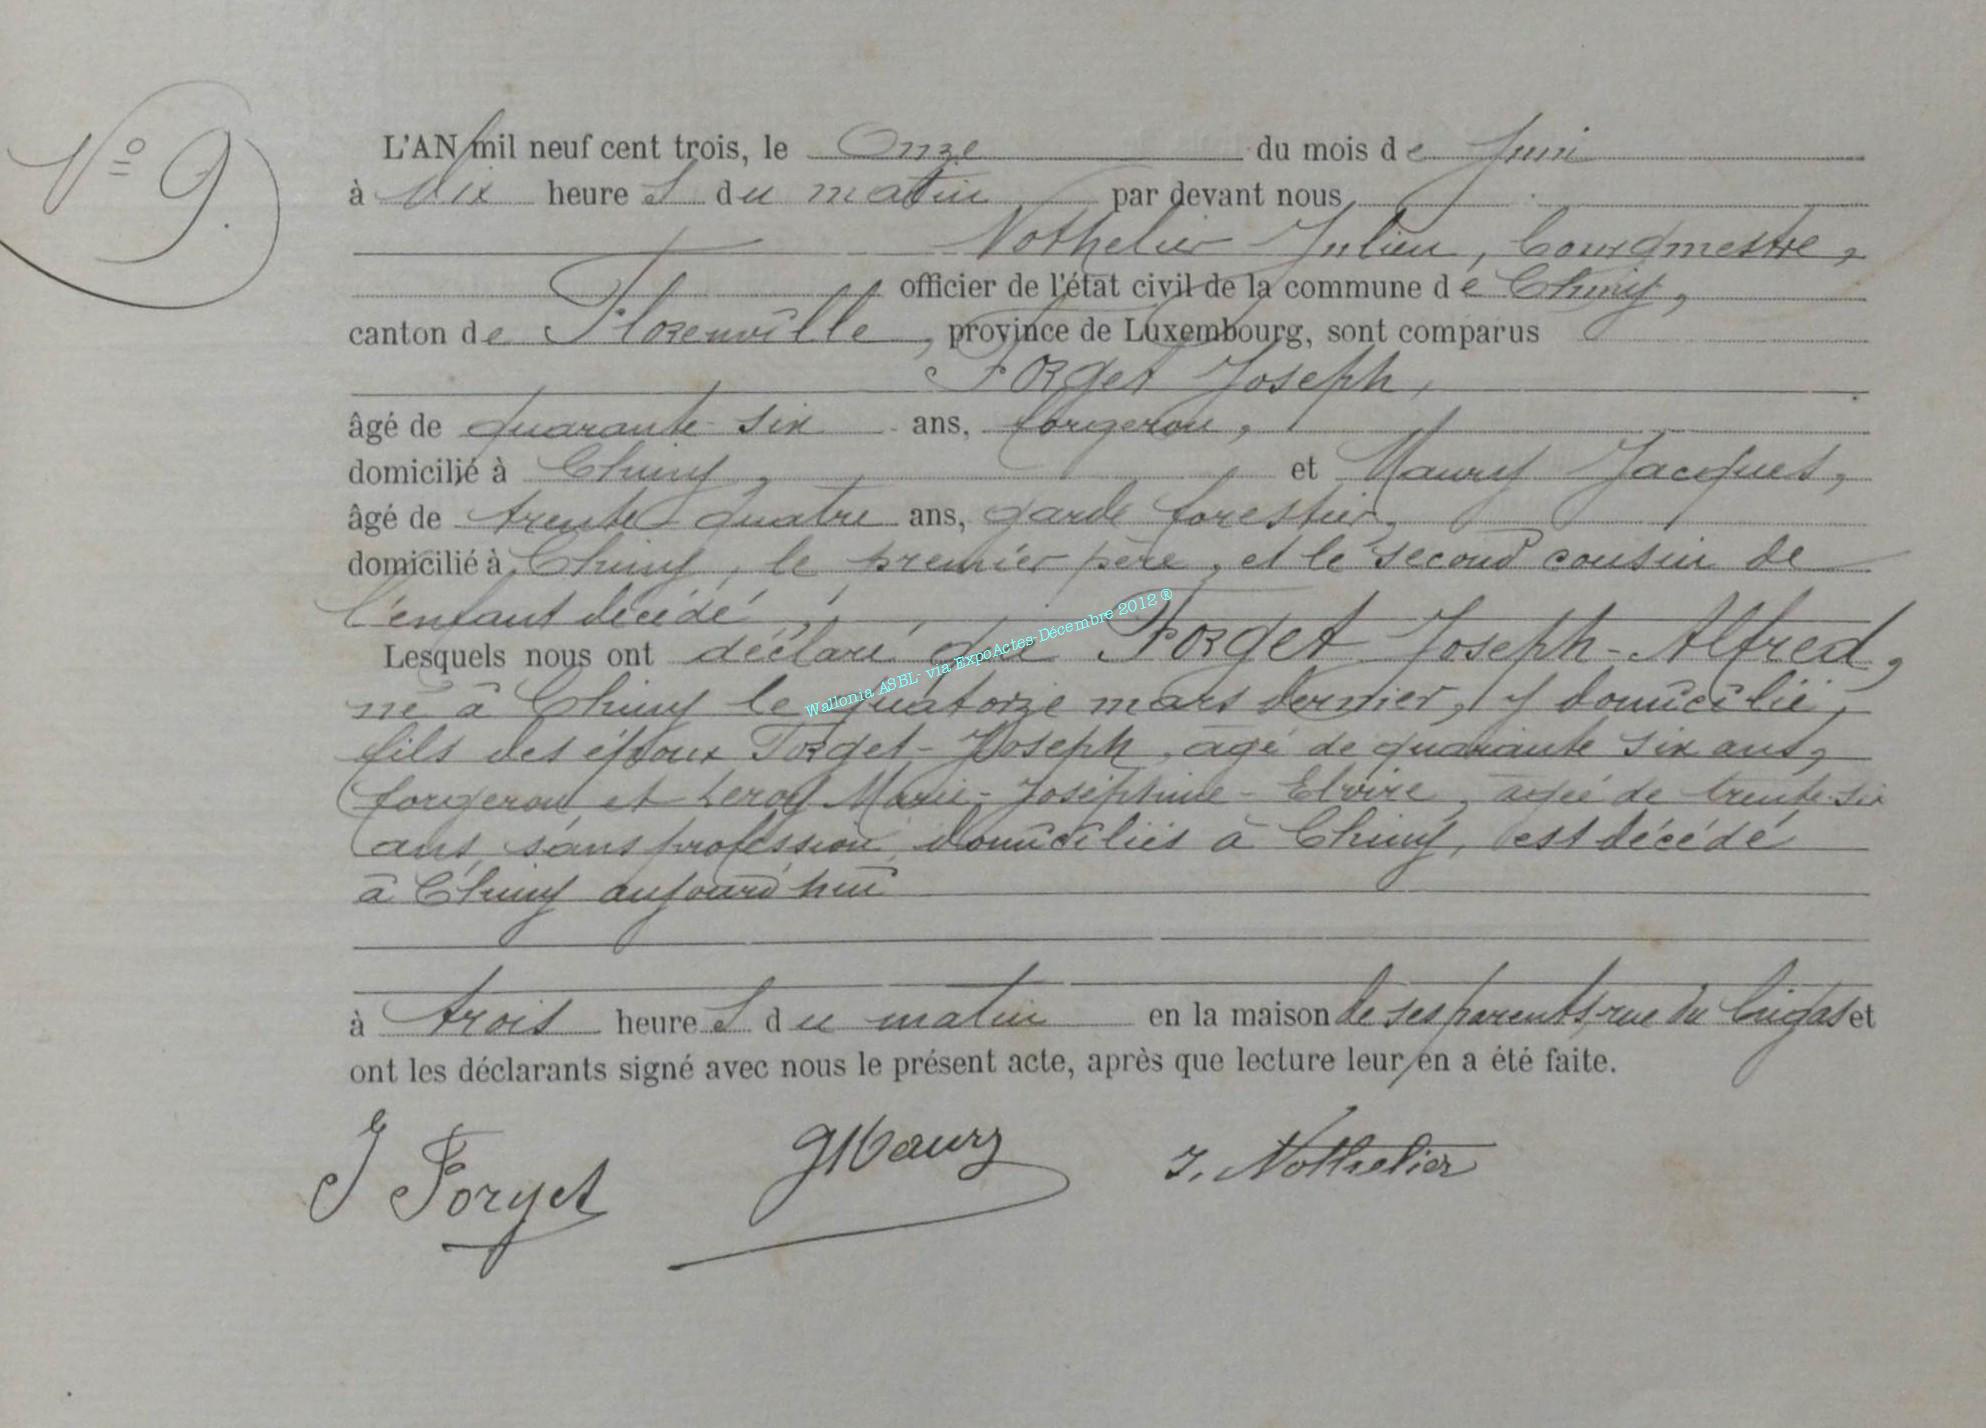 N° 9.
L'AN mil neuf cent trois, le Onze du mois de Juin
à dix heures du matin par devant nous
Nothelier Julien, bourgmestre,
officier de l'état civil de la commune de Chiny,
canton de Florenville, province de Luxembourg, sont comparus
Forget Joseph,
âgé de quarante-six ans, forgeron,
domicilié à Chiny, et Maury Jacques,
âgé de trente-quatre ans, garde forestier,
domicilié à Chiny, le premier père, et le second cousin de
l'enfant décédé,
Lesquels nous ont déclaré que Forget Joseph-Alfred,
né à Chiny le quatorze mars dernier, y domicilié,
fils des époux Forget-Joseph, âgé de quarante six ans,
forgeron, et Leroy Marie-Joséphine-Elvire, âgée de trente-six
ans, sans profession, domiciliés à Chiny, est décédé
à Chiny aujourd'hui
à trois heures du matin en la maison de ses parents, rue du et
ont les déclarants signé avec nous le présent acte, après que lecture leur en a été faite.
J Forget JMaury J. Nothelier
Wallonia ASBL- via ExpoActes-Décembre 2012 ®